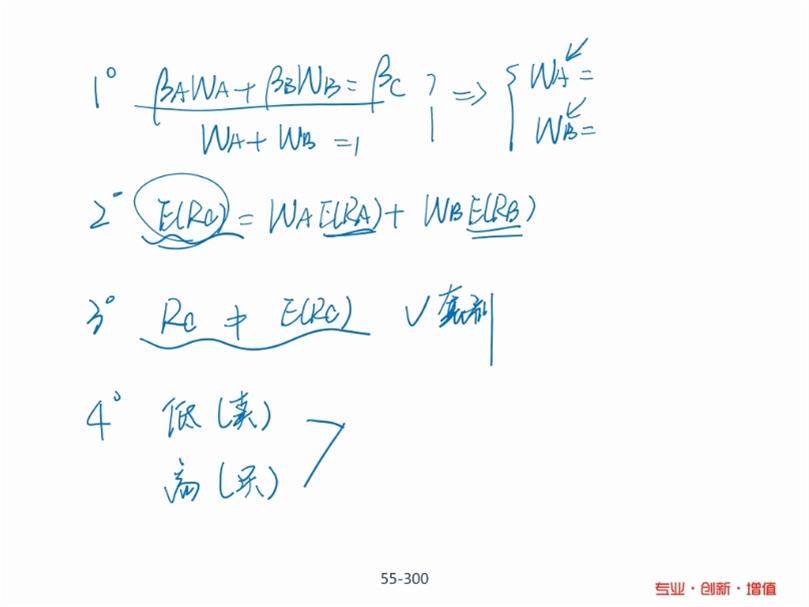 1° βAWA + βBWB = βC } => { WA =
WA + WB = 1 WB =
2° E(RC) = WA E(RA) + WB E(RB)
3° RC ≠ E(RC) ✓ 套利
4° 低(卖)
高(买)
55-300
专业·创新·增值